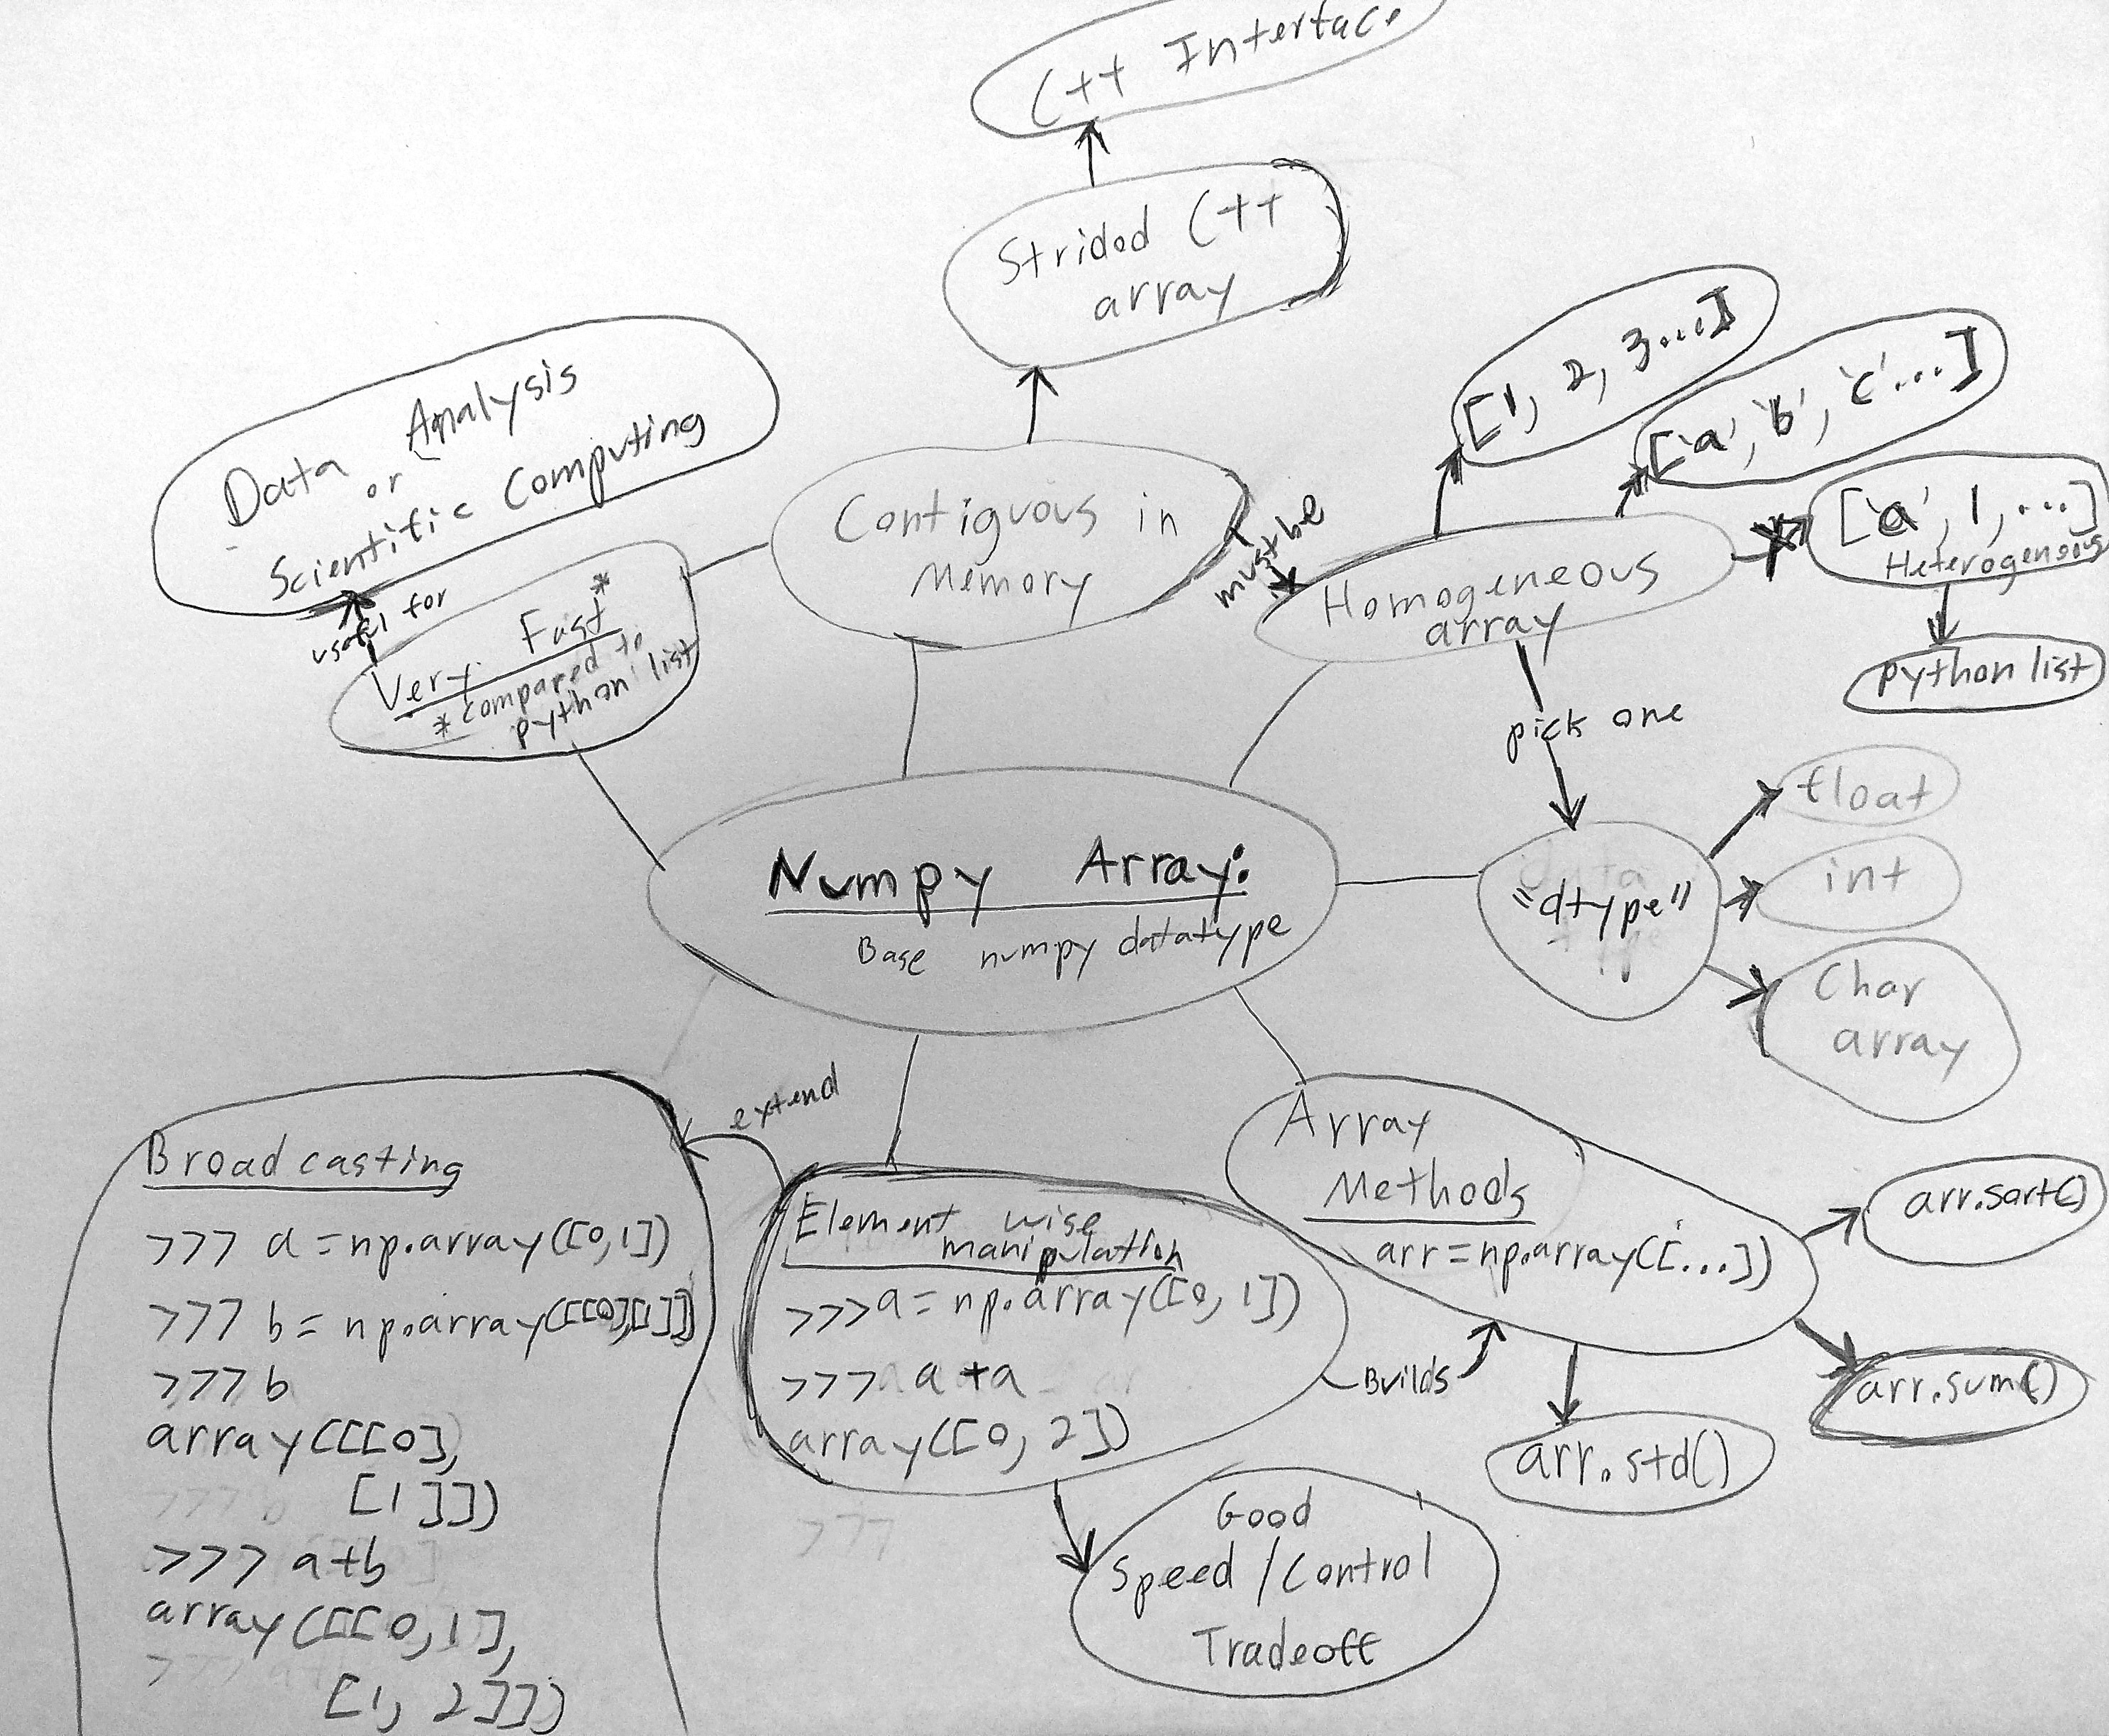 C++ Interface
Strided C++
array
Data Analysis
or
Scientific Computing
useful for
Very Fast*
*compared to
python list
Contiguous in
Memory
must be
[1, 2, 3...]
['a', 'b', 'c'...]
['a', 1, ...]
Heterogeneous
python list
Homogeneous
array
pick one
"dtype"
float
int
Char
array
Numpy Array:
Base numpy datatype
extend
Broadcasting
>>> a = np.array([0,1])
>>> b = np.array([[0],[1]])
>>> b
array([[0],
[1]])
>>> a+b
array([[0,1],
[1, 2]])
Element wise
manipulation
>>> a = np.array([0, 1])
>>> a +a
array([0, 2])
Builds
Array
Methods
arr=np.array([...])
arr.sort()
arr.sum()
arr.std()
Good
Speed / Control
Tradeoff
>>>